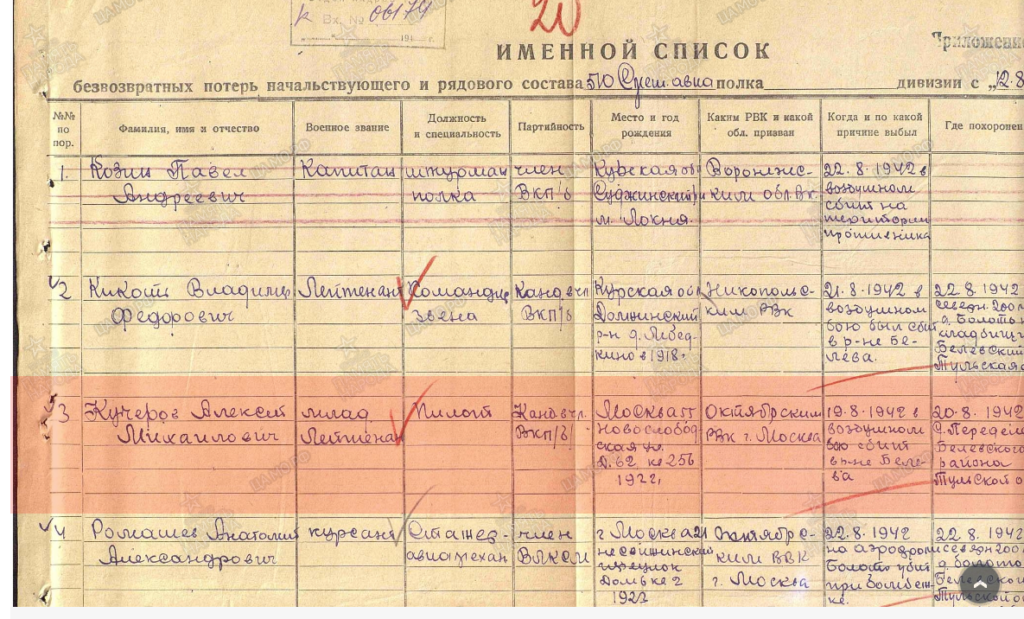 к Вх. № 06174
20
ИМЕННОЙ СПИСОК
Приложение
безвозвратных потерь начальствующего и рядового состава 510 авиаполка дивизии с „12.8
№№ по пор.
Фамилия, имя и отчество
Военное звание
Должность и специальность
Партийность
Место и год рождения
Каким РВК и какой обл. призван
Когда и по какой причине выбыл
Где похоронен
1. Козин Павел Капитан штурман член Курская обл Воронежс- 22.8.1942 в
Андреевич полка ВКП/б Суджинский ким обл.ВК воздушном
м. Локня. сбит на
територии
противника
2 Кикоть Владимир Лейтенант Командир Канд.чл Курская об Никопольс- 21.8.1942 в 22.8.1942
Федорович звена ВКП/б ким РВК воздушном
р-н д. Лебед- бою был сбит д. Болото
кино в 1918. в р-не Бе- кладбище
лева. Белевский
Тульская о
3 Кучеров Алексей млад Пилот Канд.чл. Москва 19.8.1942 в 20.8.1942
Михаилович Лейтенан ВКП/б/ Новослобод Октябрским воздушном
ская ул. РВК г. Москва бою сбит Белевского
д. 62 кв 256 в р-не Беле- района
1922, ва Тульской о
4 Ромашев Анатолий курсант член г Москва Октябрс- 22.8.1942 22.8.1942
Александрович авиамехан ВЛКСМ ким РВК на аэродром
г. Москва Болото убит д. болото
Дом 6 кв 2 при бомбеж- Белевск
1922 ке. Тульской о